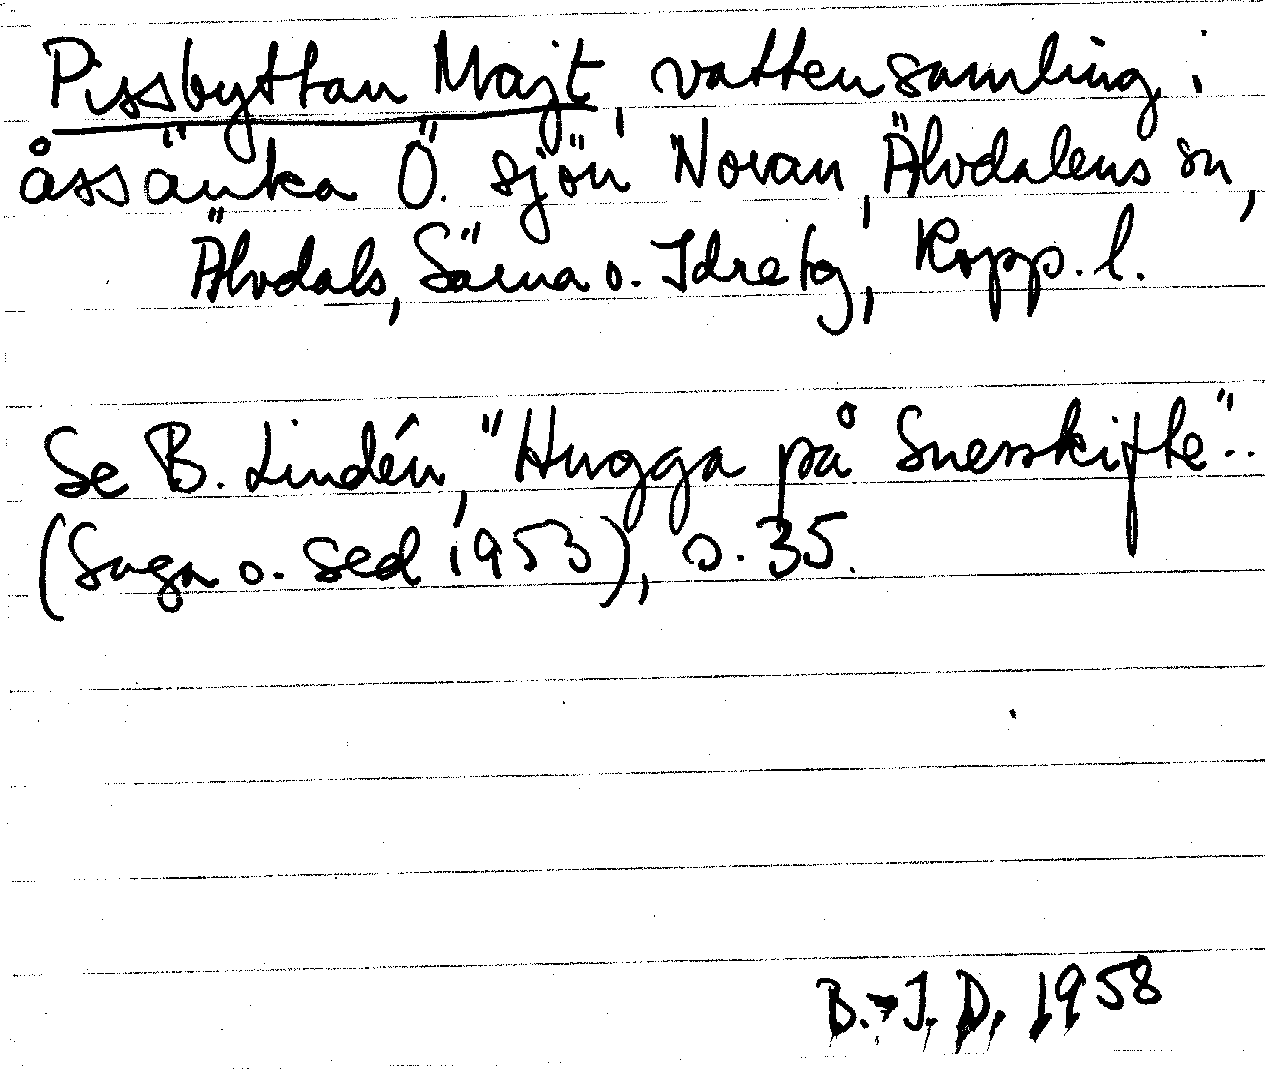 Pissbyttan Majt, vattensamling i
åssänka Ö. sjön Navan, Älvdalens sn,
Älvdals, Särna o. Idre tg, Kopp. l.
Se B. Lindén, "Hugga på Snesskifte"..
(Saga o. sed 1953), s. 35.
B.-J. D. 1958